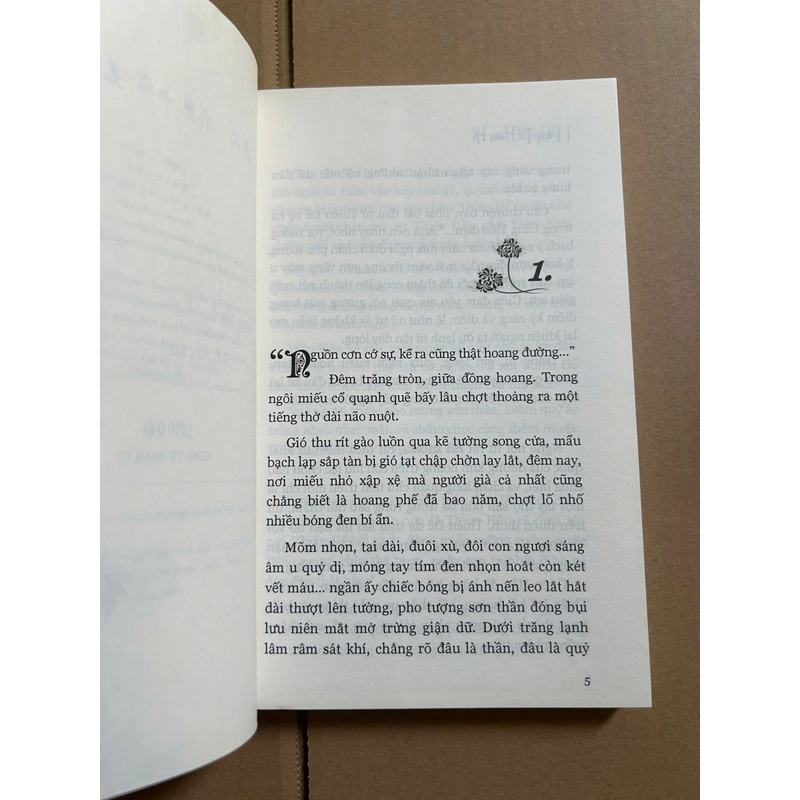 1.
“Nguồn cơn cớ sự, kể ra cũng thật hoang đường...”
Đêm trăng tròn, giữa đồng hoang. Trong
ngôi miếu cổ quạnh quẽ bấy lâu chợt thoảng ra một
tiếng thở dài não nuột.
Gió thu rít gào luồn qua kẽ tường song cửa, mẩu
bạch lạp sắp tàn bị gió tạt chập chờn lay lắt, đêm nay,
nơi miếu nhỏ xập xệ mà người già cả nhất cũng
chẳng biết là hoang phế đã bao năm, chợt lố nhố
nhiều bóng đen bí ẩn.
Mõm nhọn, tai dài, đuôi xù, đôi con ngươi sáng
âm u quỷ dị, móng tay tím đen nhọn hoắt còn két
vết máu... ngần ấy chiếc bóng bị ánh nến leo lắt hắt
dài thượt lên tường, pho tượng sơn thần đóng bụi
lưu niên mắt mở trừng giận dữ. Dưới trăng lạnh
lâm râm sát khí, chẳng rõ đâu là thần, đâu là quỷ
5